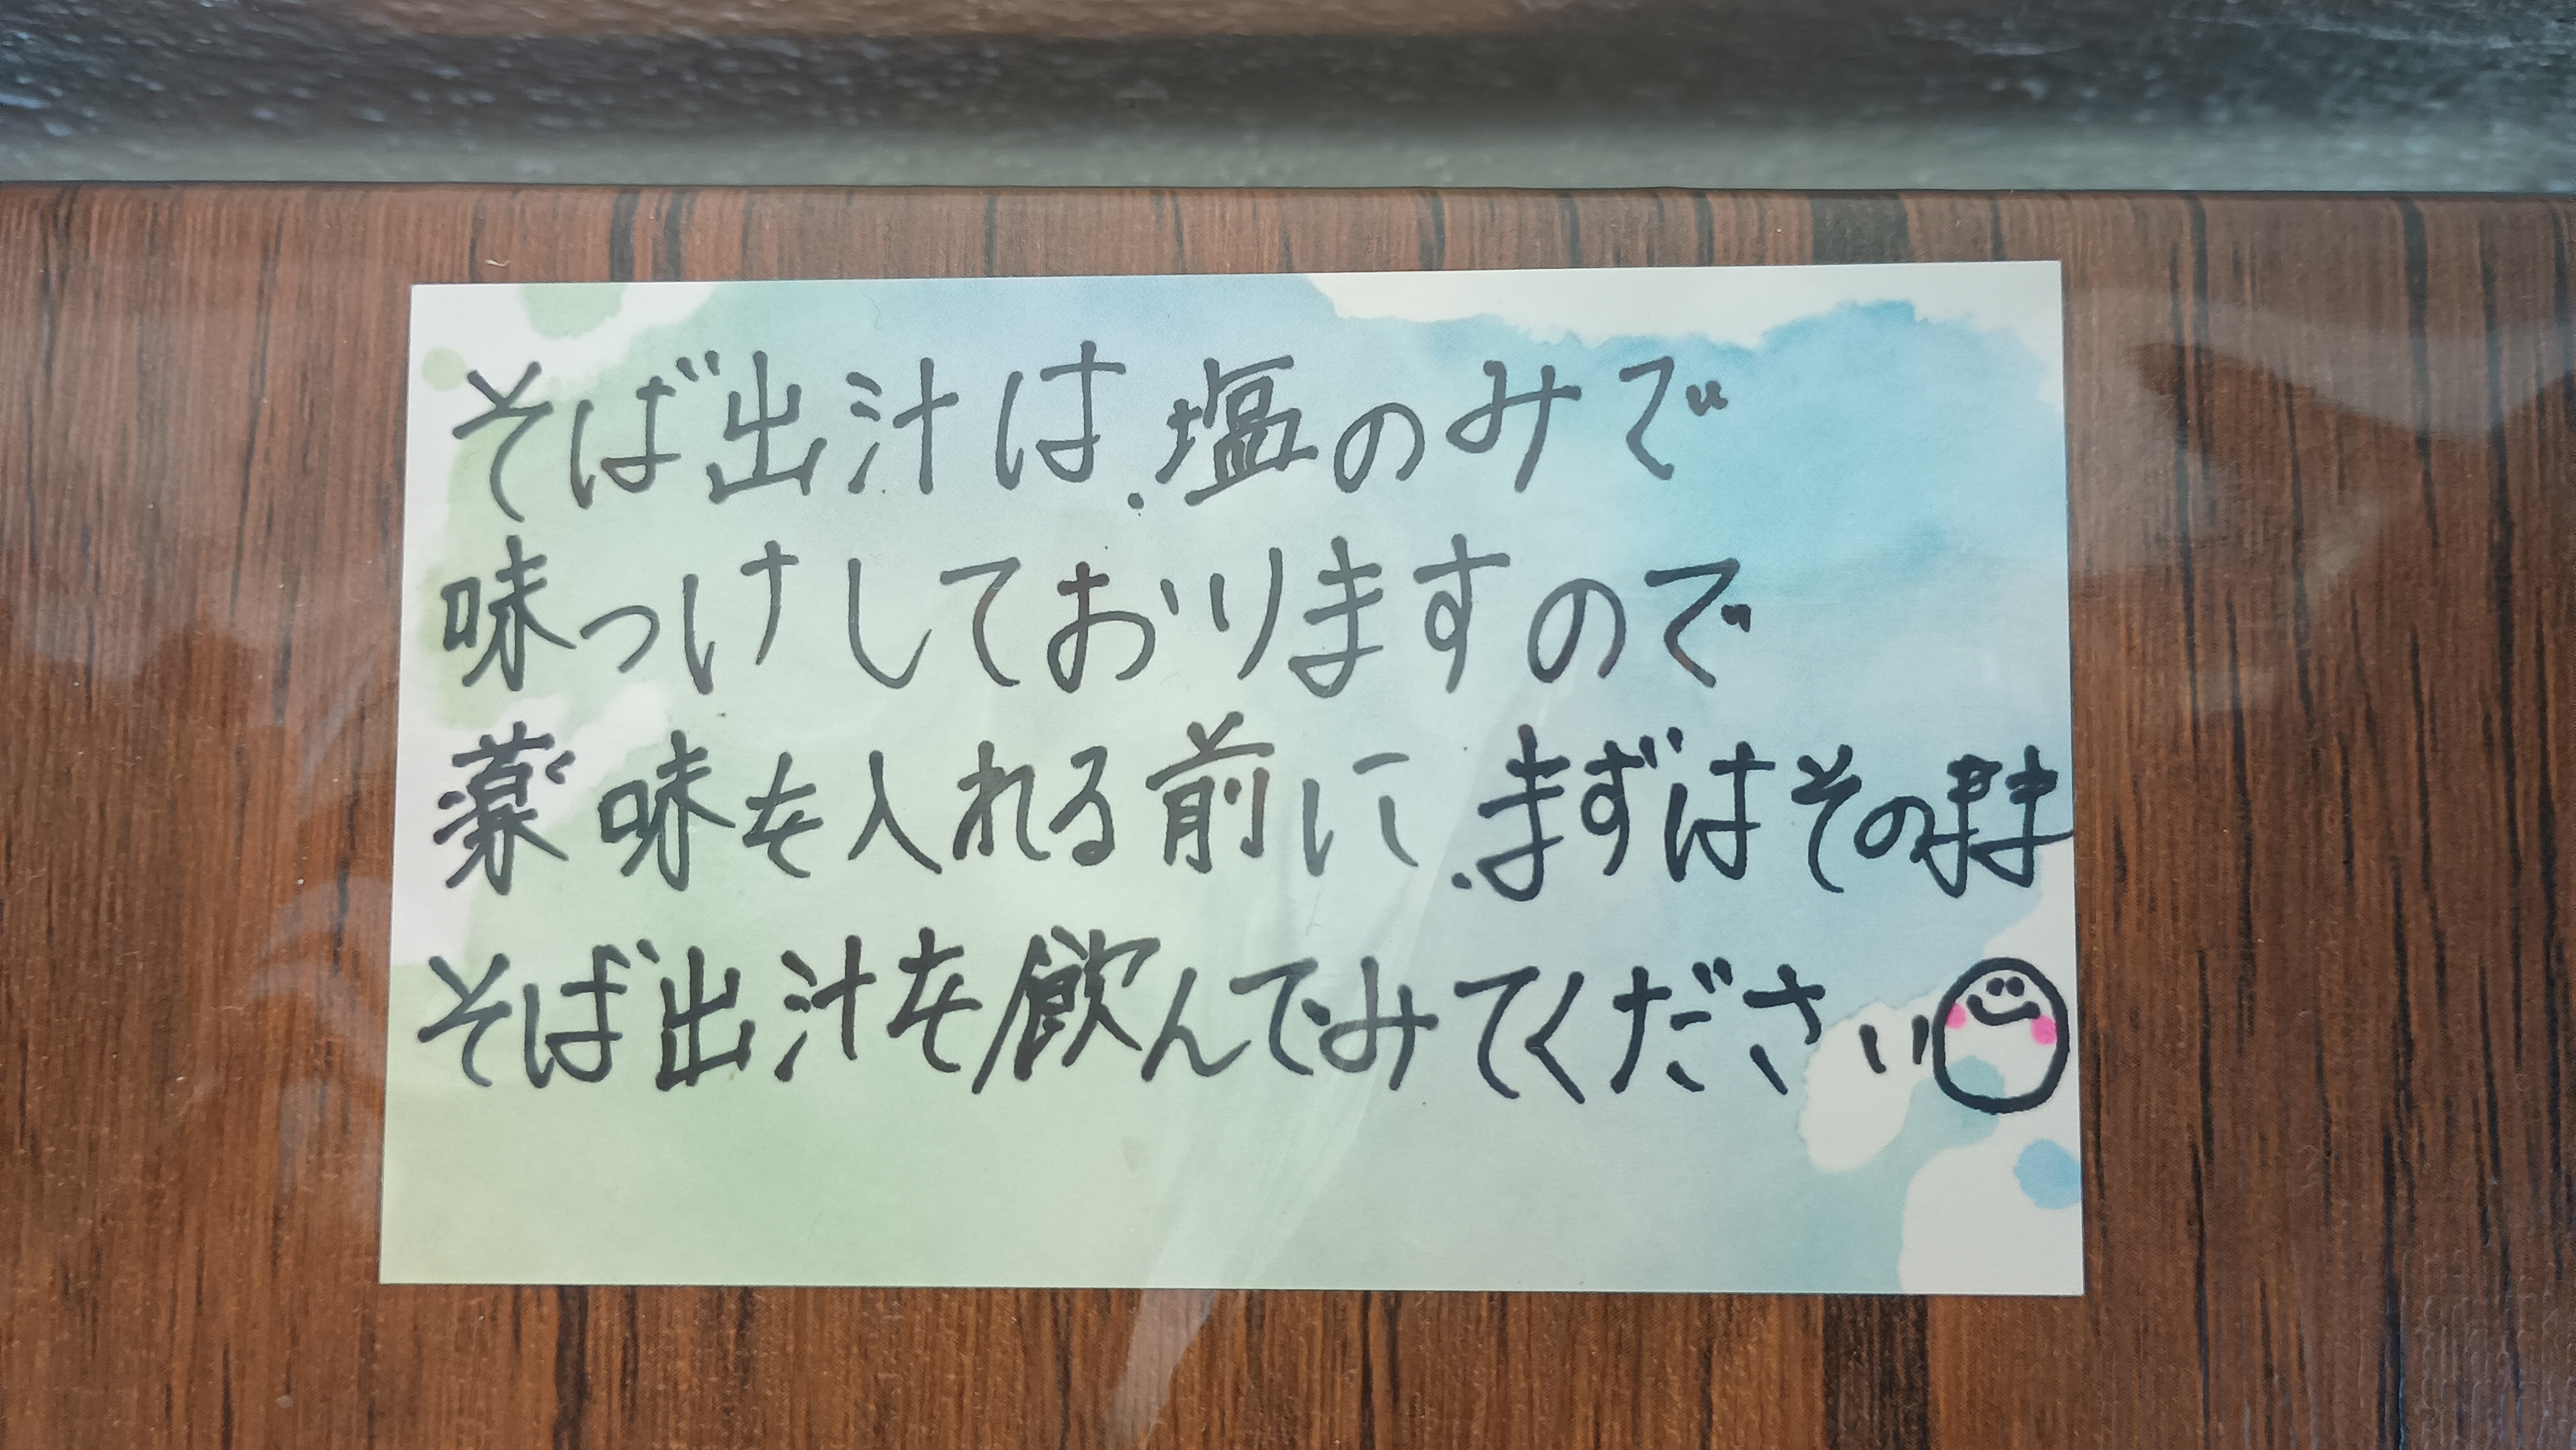 そば出汁は、塩のみで
味つけしておりますので
薬味を入れる前に、まずはそのまま
そば出汁を飲んでみてください